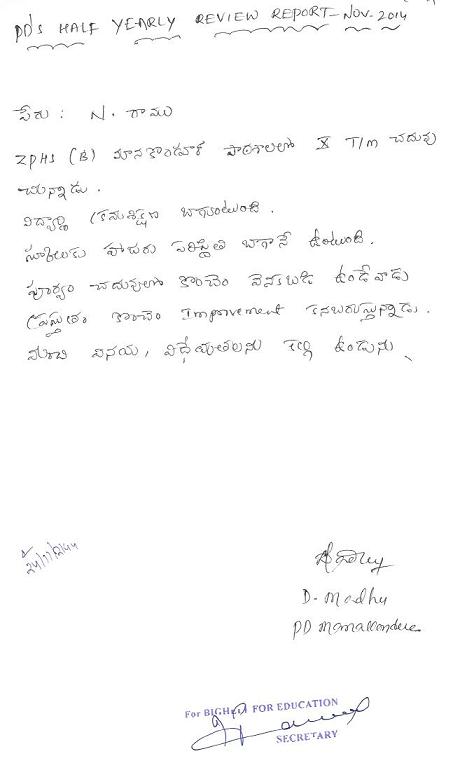 PD'S HALF YEARLY REVIEW REPORT - NOV. 2014
పేరు : N. రాము
ZPHS (B) మానకొండూర్ పాఠశాలలో X T/m చదువు
చున్నాడు.
విద్యార్థి క్రమశిక్షణ బాగుంటుంది.
స్కూలుకు హాజరు పరిస్థితి బాగానే ఉంటుంది.
పూర్వం చదువులో కొంచెం వెనుకబడి ఉండేవాడు
ప్రస్తుతం కొంచెం Improvement కనబరుస్తున్నాడు.
మంచి వినయ, విధేయతలను కల్గి ఉండును
24/11/2014
D. Madhu
PD Manakondur
For BIGHELP FOR EDUCATION
SECRETARY